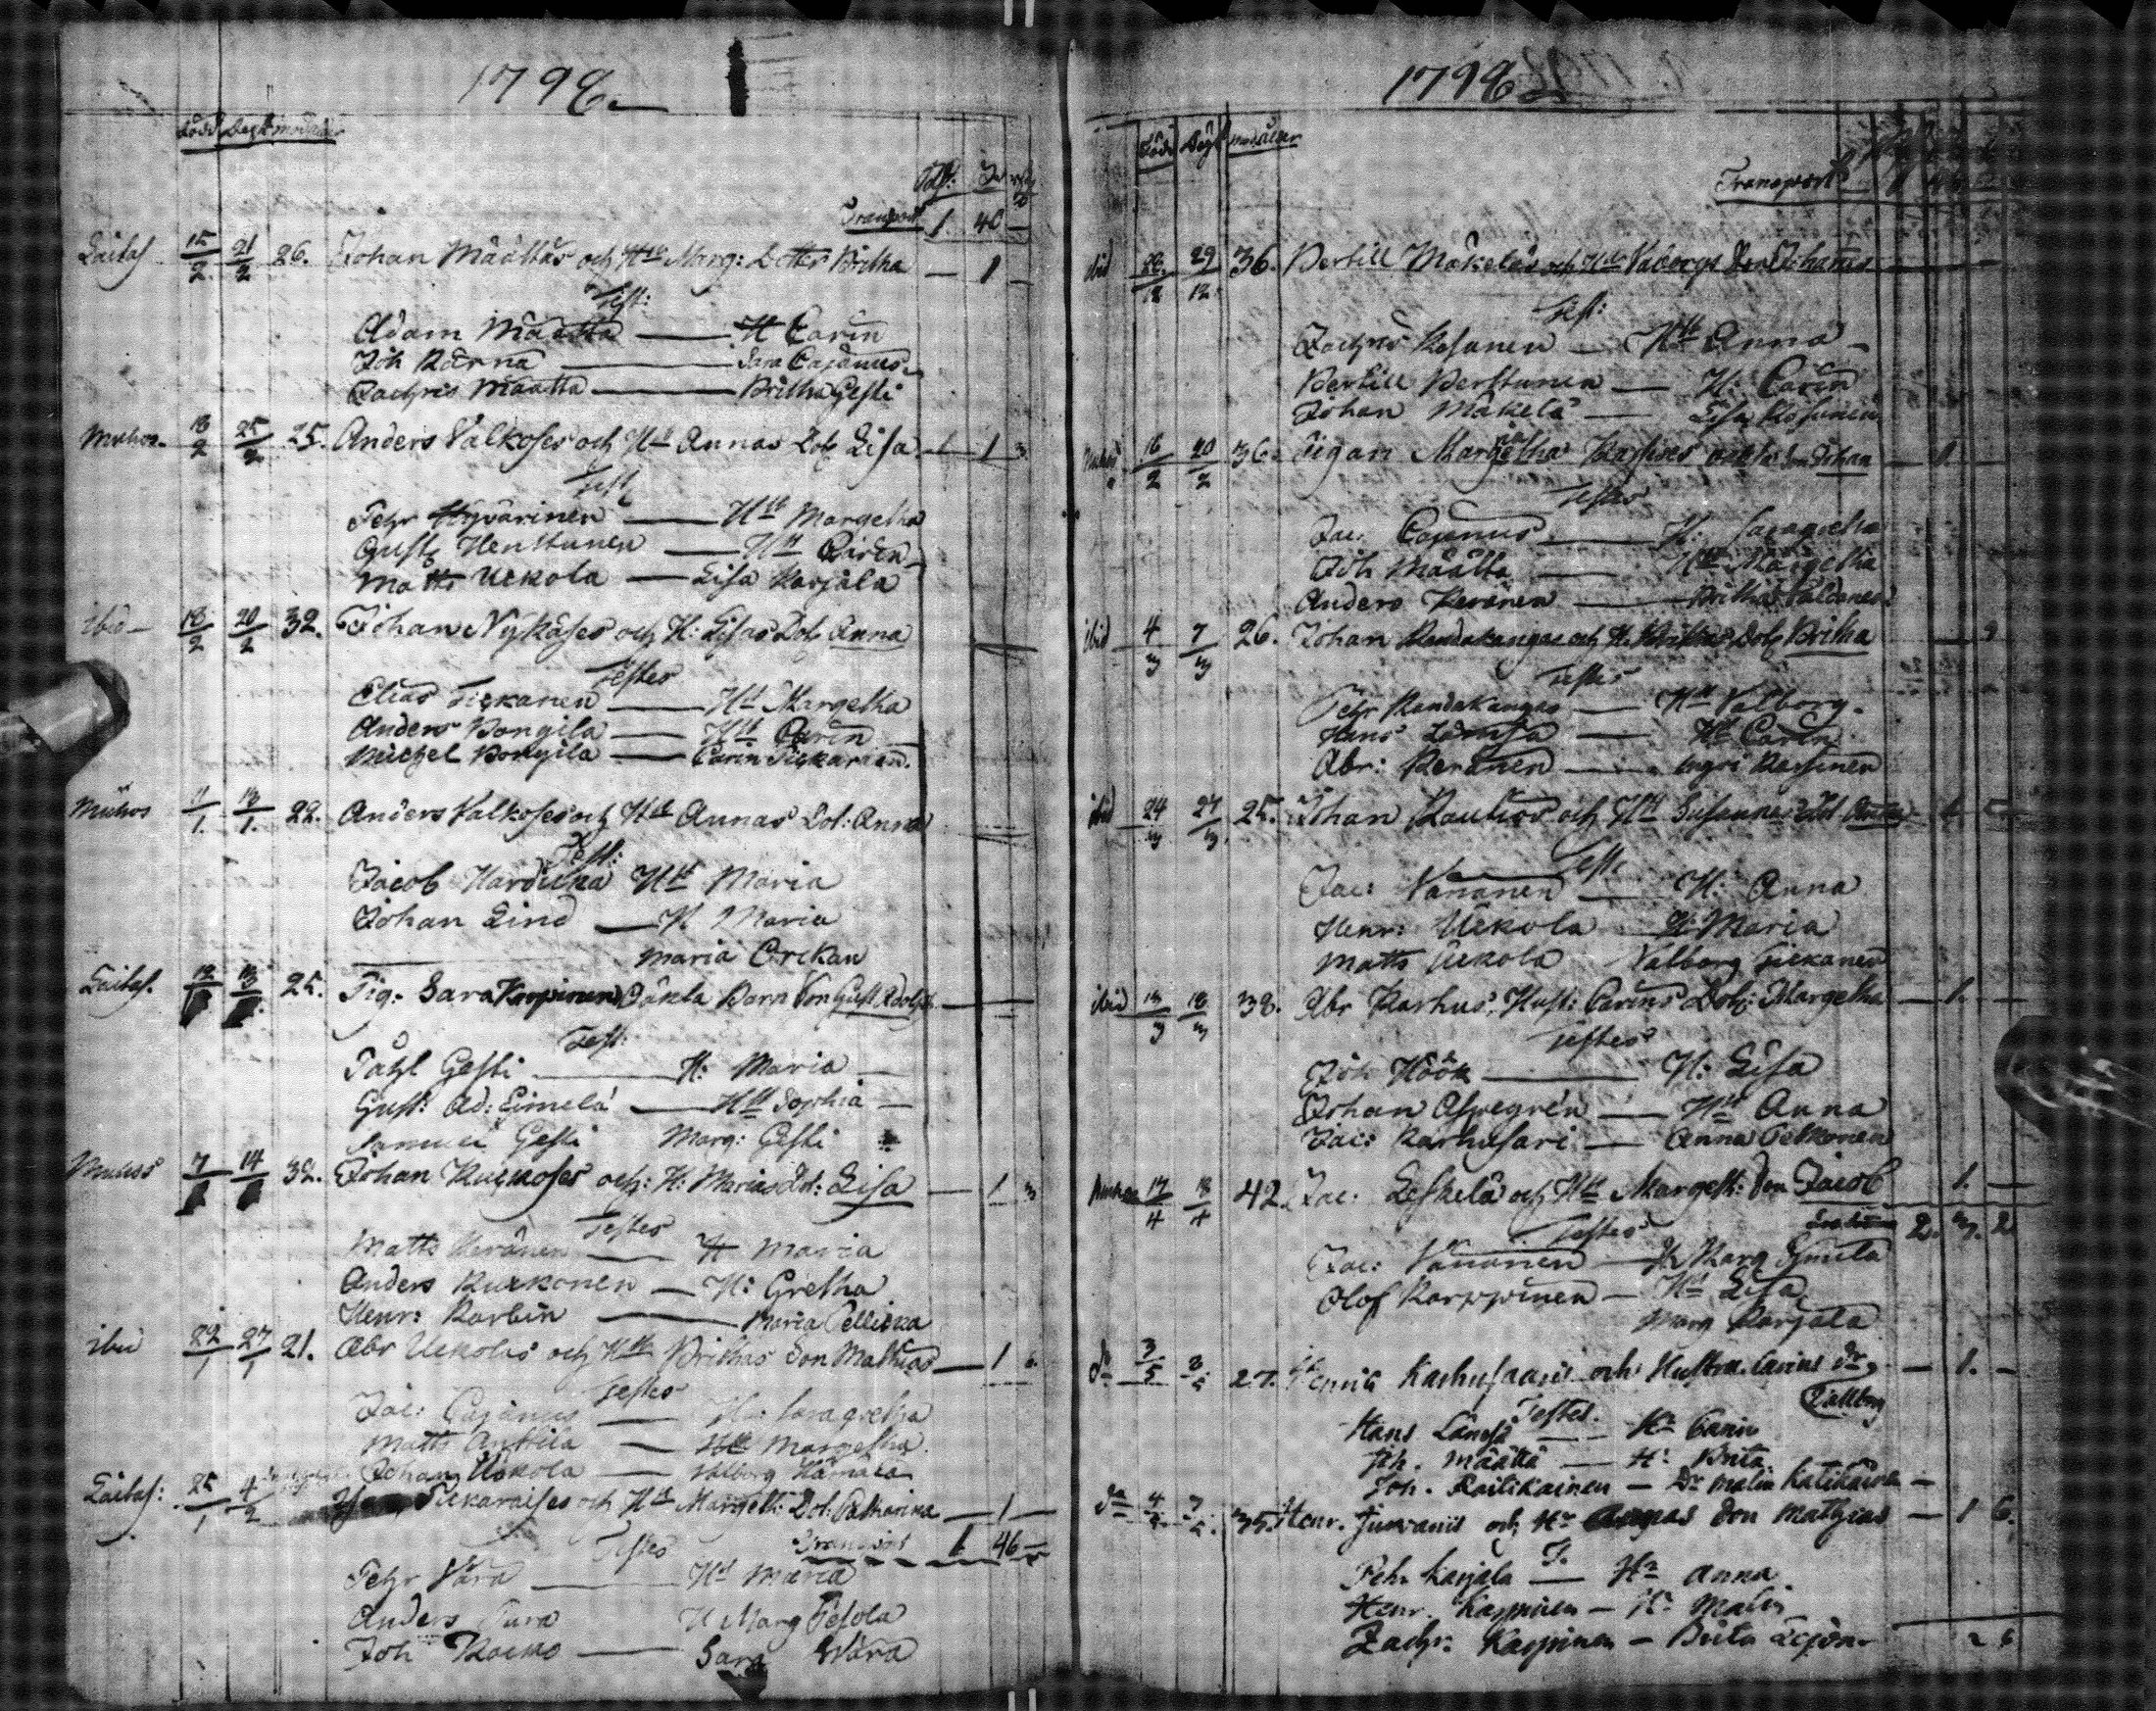 1798
Född Döpt modr ålder
Transport 1 46 –
Laitas. 15/2 21/2 26. Johan Määttäs och Hu Marg: Dotter Britha — 1 —
Test:
Adam Määtta — H Carin
Joh Kärnä — Sara Cajanus
Zachris Määtta — Britha Gesti
Muhos. 18/2 25/2 25. Anders Valkoses och Hu Annas Dot Lisa — 1 3
Test
Pehr Hyvärinen — Hu Margetha
Gust Henttunen — Hu Carin
Matts Uckola — Lisa Karjala
ibid — 18/2 20/2 32. Johan Nykäses och H: Lisas Dot Anna
Testes
Elias Tickanen — Hu Margetha
Anders Pongila — Hu Carin
Michel Pongila — Carin Tickanen.
Muhos 11/1. 13/1. 22. Anders Valkoses och Hu Annas Dot: Anna
Test:
Jacob Hardicka Hu Maria
Johan Lind — H Maria
Maria Orckan
Laitas. 12 13 25. Pig. Sara Karpinens Oäkta Barn Son Gust. Adolph.
Test:
Påhl Gesti — H: Maria —
Gust: Ad: Limelä — Hu Sophia —
Samuel Gesti Marg: Gesti
Muhos 7 14 32. Johan Kuckoses och: H: Marias Dot: Lisa — 1 3
Testes
Matts Keränen — H Maria
Anders Kuckonen — H: Gretha
Henr: Korbin — Maria Pellicka
ibid 22/1 27/1 21. Abr Uckolas och Hu Brithas Son Mathias — 1 6.
Testes
Jac: Cajanus — H: Saragretha
Matts Anttila — Hu Margetha.
Johan Uckola — Valborg Hämälä
Laitas: 25/1 4/2 Tickaraises och Hu Margeth: Dot: Catharina — 1 —
Testes Transport 1 46 —
Pehr Vära — Hu Maria
Anders Tura H Marg Pesola
Joh Kocko — Sara Wära
1798
Född Döpt mod: ålder
Transport
ibid 22/12 29/12. 36. Bertill Mäkeläs och Hu Vaborgs Son Johannes
Test:
Zachris Kosunen — Hu Anna —
Bertill Perttunen — H: Carin
Johan Mäkelä — Lisa Kosunen
Muhos 16/2 20/2 36. Pigan Margetha Kassines oäkta Son Johan — 1. —
Testes
Jac: Cajanus — H: Saragretha
Joh Määtta — Hu Margetha
Anders Keränen — Britha Valdanen
ibid 4/3 7/3 26. Johan Kandakangas och H. Brithas Dot Britha
Testes
Pehr Kandakangas — Hu Valborg.
Hans Lämsä — Hu Carin
Abr: Keränen — Ingri Kassinen
ibid 24/3 27/3. 25. Johan Rautios och Hu Susannas Dot Anna
Test
Jac: Vänänen — H: Anna
Henr: Uckola — H: Maria
Matts Uckola Valborg Tickanen
ibid 13/3 18/3 38. Abr Karhus, Hust: Carins Dot: Margetha — 1. —
Testes
Joh Höök — H: Lisa
Johan Aspegrén — Hu Anna
Jac: Karhusari — Anna Pelkonen
Muhos 17/4 18/4 42. Jac: Leskelä och Hu Margeth: Son Jacob 1. —
Testes 2. 3. 2
Jac: Vänänen — H Marg Simila
Olof Karppinen — Hu Lisa
Marg Karjala
Do 3/5 27. Henric Karhusaaris och Hustru Carins Dr — 1. —
Vallborg
Testes.
Hans Lämsä — Hu Carin
Joh. Määttä — H: Brita
Joh. Kaitikainen — Dr Malin Katikainen —
Do 4 7 35. Henr. Juvanis och Hu Annas Son Mathias — 1 6.
T.
Pehr Karjala — Hu Anna
Henr. Karpinen — H: Malin
Zachr: Karpinen — Brita Lejon
2 6